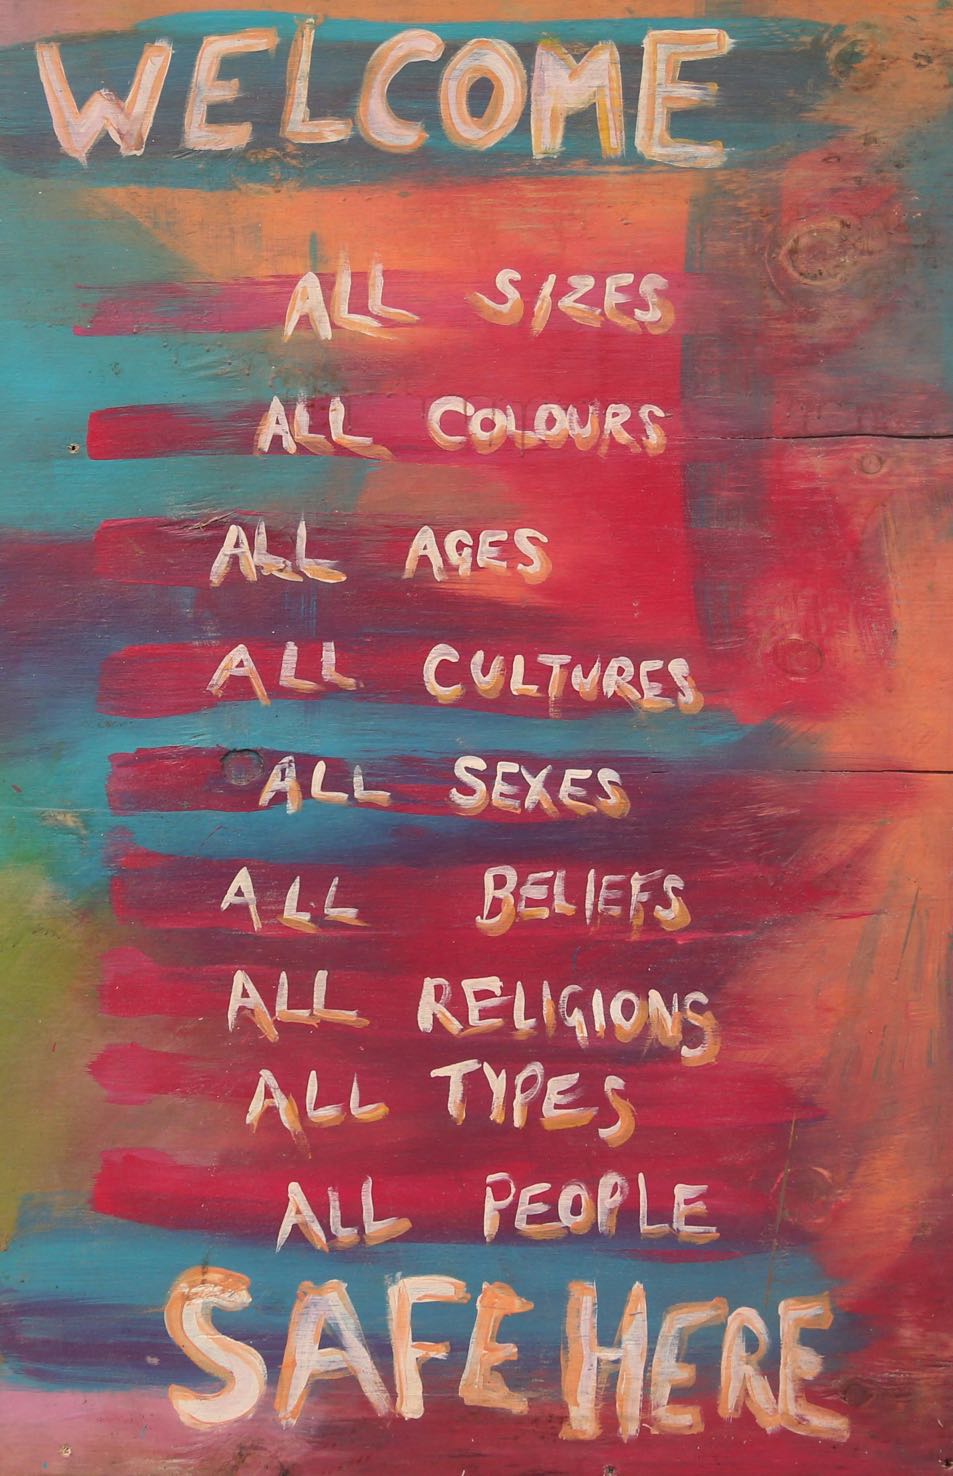 WELCOME
ALL SIZES
ALL COLOURS
ALL AGES
ALL CULTURES
ALL SEXES
ALL BELIEFS
ALL RELIGIONS
ALL TYPES
ALL PEOPLE
SAFE HERE